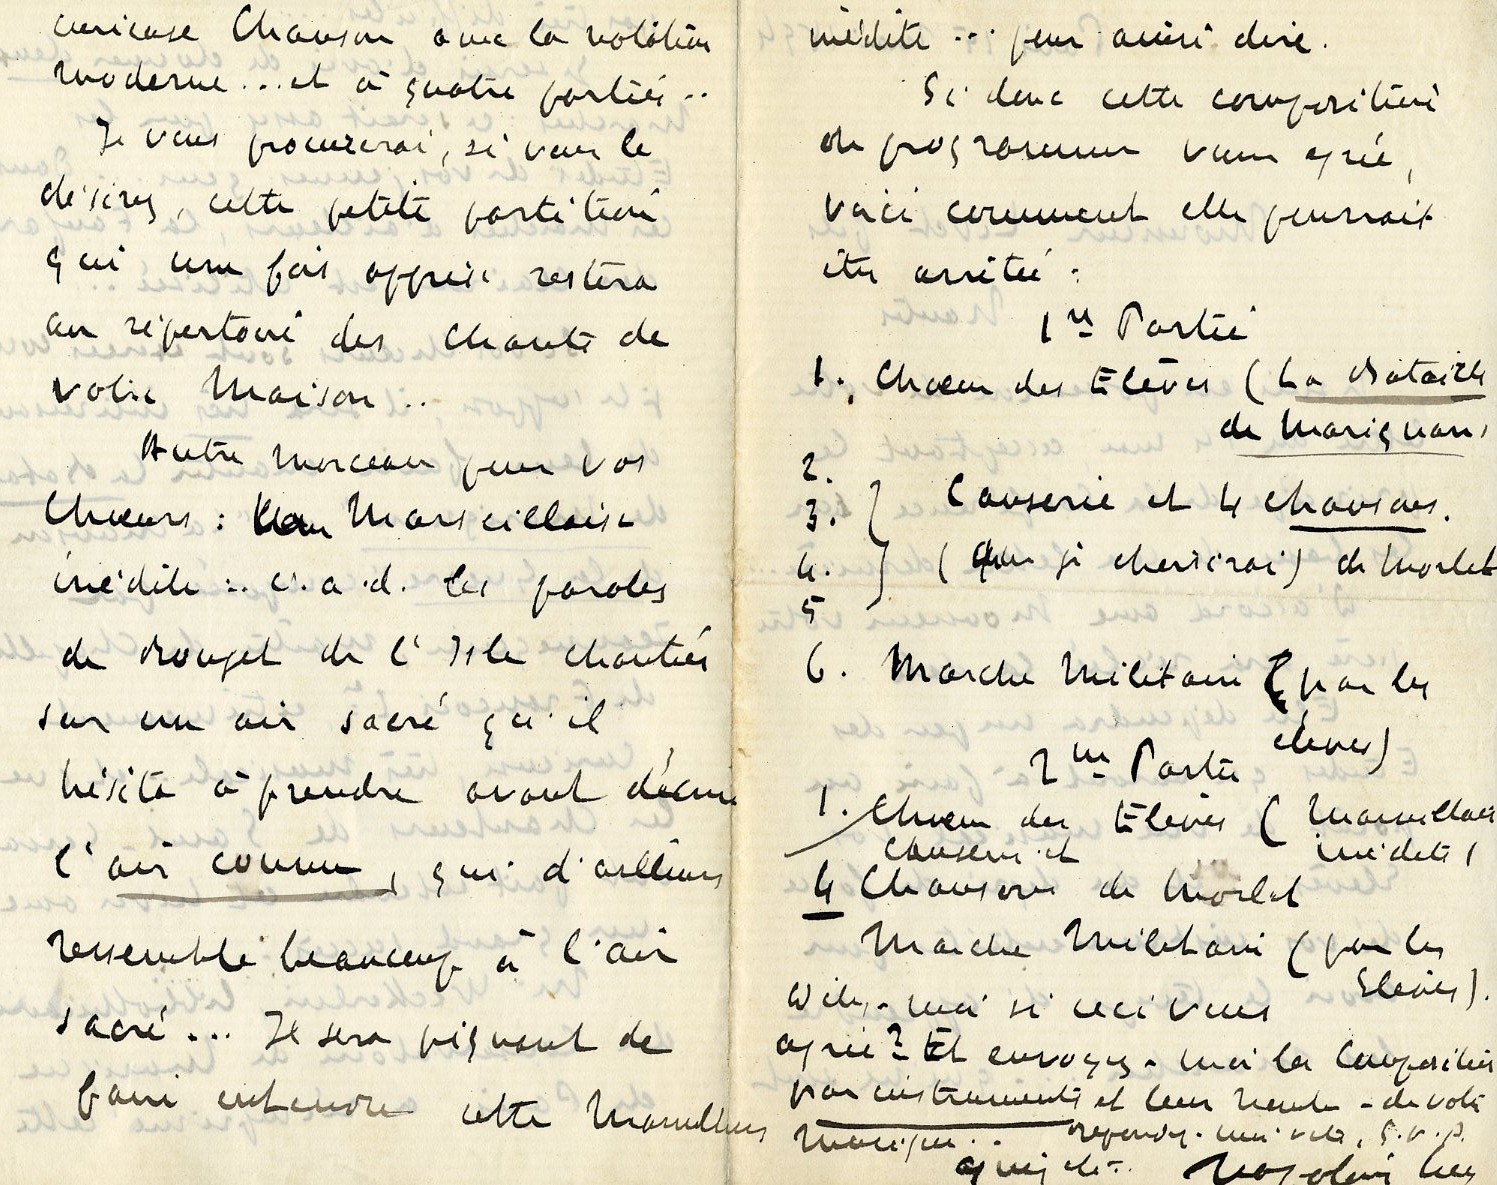 curieuse Chanson avec la notation
moderne... et à quatre parties..
Je vous procurerai, si vous le
désirez, cette petite partition
qui une fois apprise restera
au répertoire des Chants de
votre Maison..
Autre morceau pour vos
Chœurs : Marseillaise
inédite .. c.a.d. les paroles
de Rouget de l'Isle chantées
sur un air sacré qu'il
hésita à prendre avant d'écrire
l'air connu, qui d'ailleurs
ressemble beaucoup à l'air
sacré... Il sera piquant de
faire entendre cette Marseillaise
inédite ... pour ainsi dire.
Si donc cette composition
de programme vous agrée,
voici comment elle pourrait
être arrêtée :
1re Partie
1. Chœur des Elèves (La Bataille
de Marignan)
2.
3. Causerie et 4 chansons.
4. (que je choisirai) de Morlet
5
6. Marche Militaire (par les
élèves)
2me Partie
1. Chœur des Elèves (Marseillaise
inédite)
causerie et
4 Chansons de Morlet
Marche Militaire (par les
Elèves).
Dites-moi si ceci vous
agrée ? Et envoyez-moi la Composition
par instruments et leur nombre - de votre
musique.. répondez-moi vite, S.V.P.